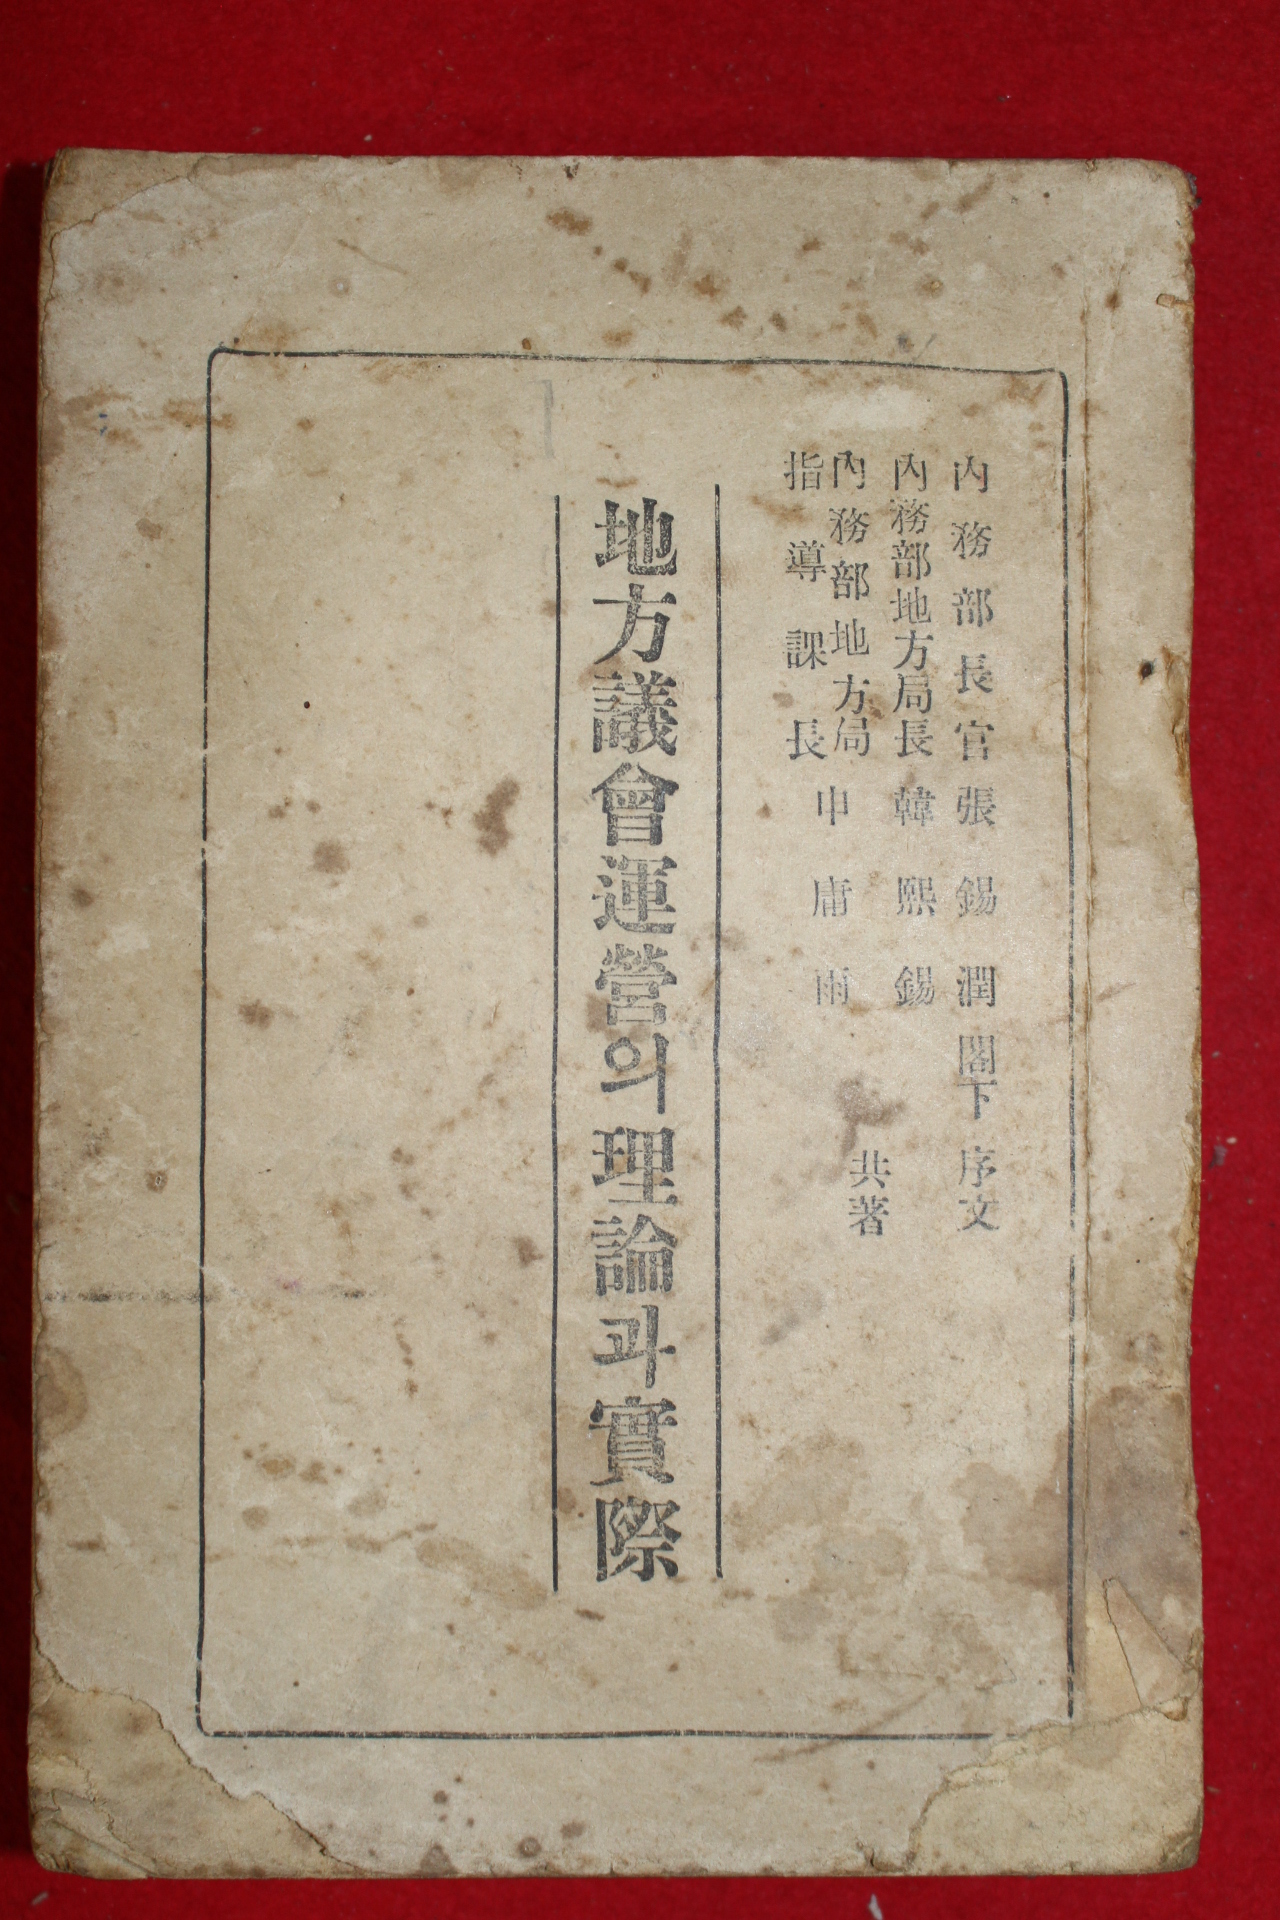 內務部長官張錫潤閣下序文
內務部地方局長韓熙錫
內務部地方局
指導課長申庸雨
共著
地方議會運營의理論과實際